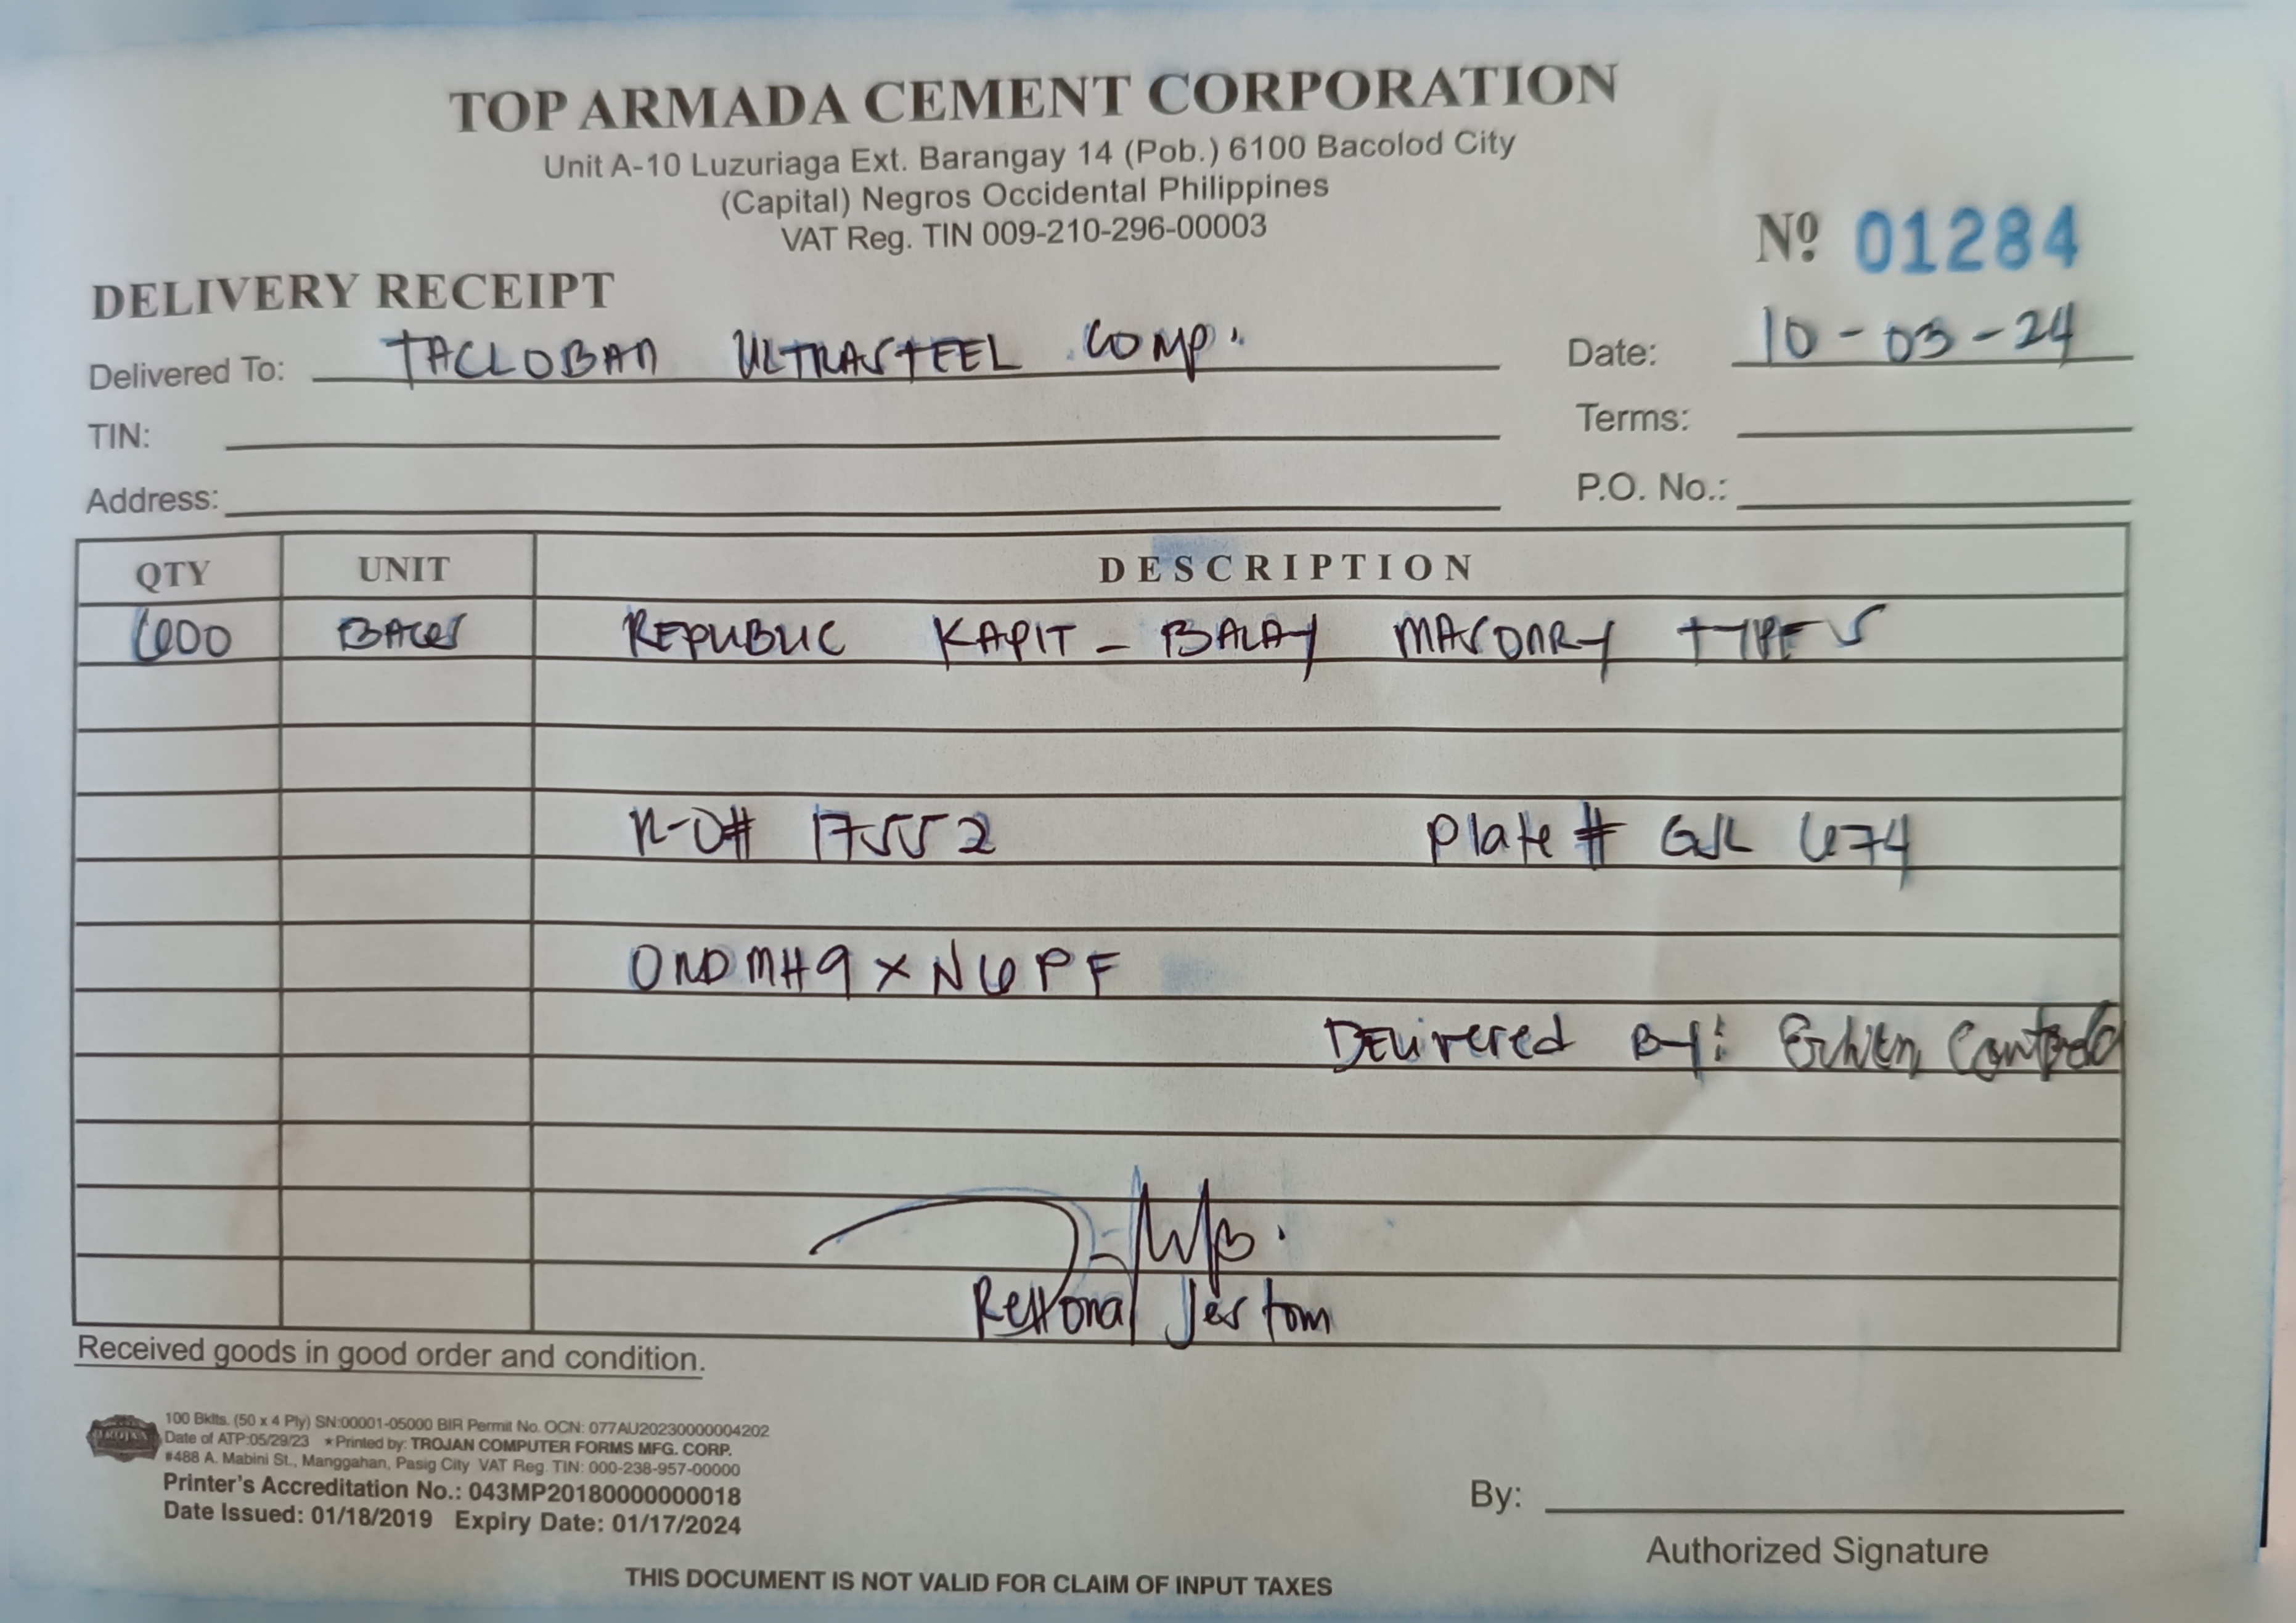 TOP ARMADA CEMENT CORPORATION
Unit A-10 Luzuriaga Ext. Barangay 14 (Pob.) 6100 Bacolod City
(Capital) Negros Occidental Philippines
VAT Reg. TIN 009-210-296-00003
Nº 01284
DELIVERY RECEIPT
Delivered To: TACLOBAN ULTRASTEEL COMP.
Date: 10-03-24
TIN:
Terms:
Address:
P.O. No.:
QTY UNIT DESCRIPTION
600 BAGS REPUBLIC KAPIT-BALAY MASONRY TYPE S
R-O# 17552 Plate # GJL 674
ONDMH9XN6PF
DELivered By:
Jes tom
Received goods in good order and condition.
TROJAN
100 Bklts. (50 x 4 Ply) SN:00001-05000 BIR Permit No. OCN: 077AU20230000004202
Date of ATP:05/29/23 ★Printed by: TROJAN COMPUTER FORMS MFG. CORP.
#488 A. Mabini St., Manggahan, Pasig City VAT Reg. TIN: 000-238-957-00000
Printer's Accreditation No.: 043MP20180000000018
Date Issued: 01/18/2019 Expiry Date: 01/17/2024
By:
Authorized Signature
THIS DOCUMENT IS NOT VALID FOR CLAIM OF INPUT TAXES